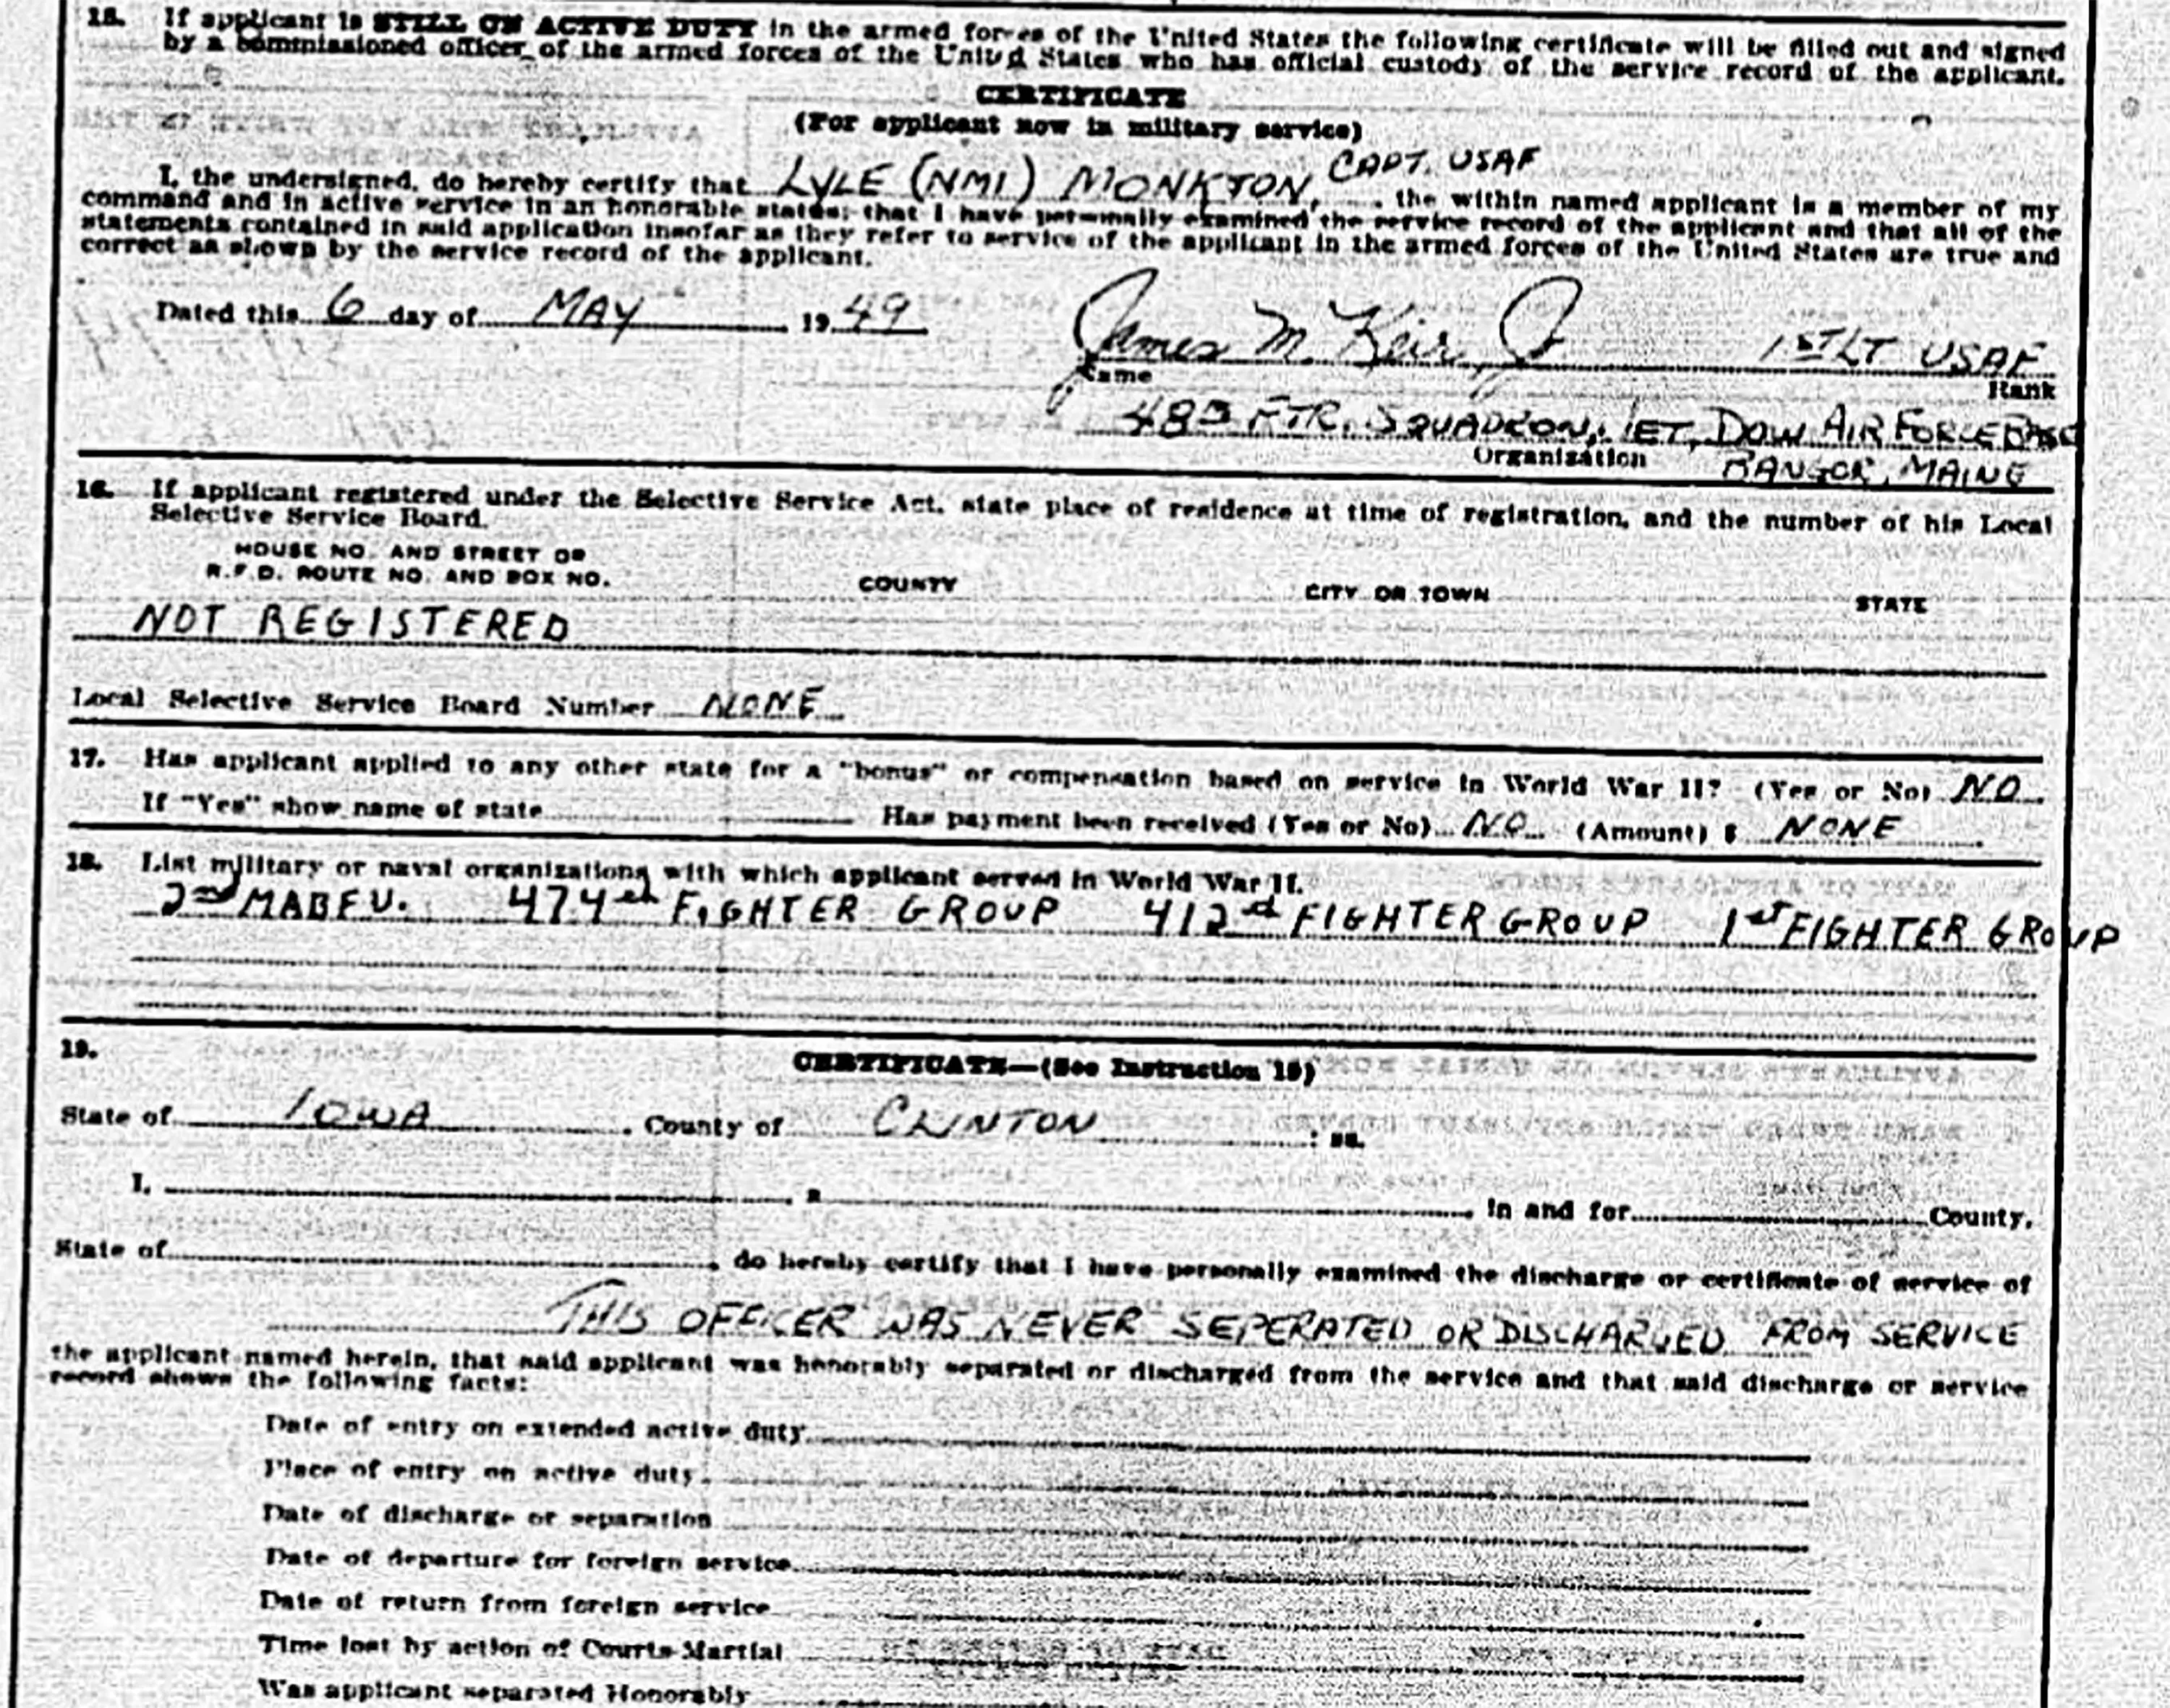 15. If applicant is STILL ON ACTIVE DUTY in the armed forces of the United States the following certificate will be filled out and signed
by a commissioned officer of the armed forces of the United States who has official custody of the service record of the applicant.
CERTIFICATE
(For applicant now in military service)
I, the undersigned, do hereby certify that LYLE (NMI) MONKTON, CAPT. USAF, the within named applicant is a member of my
command and in active service in an honorable status; that I have personally examined the service record of the applicant and that all of the
statements contained in said application insofar as they refer to service of the applicant in the armed forces of the United States are true and
correct as shown by the service record of the applicant.
Dated this 6 day of MAY 1949
James M. Keir, Jr 1ST LT USAF
Name Rank
48 FTR. SQUADRON, JET, DOW AIR FORCE BASE
Organization BANGOR, MAINE
16. If applicant registered under the Selective Service Act, state place of residence at time of registration, and the number of his Local
Selective Service Board.
HOUSE NO. AND STREET OR
R.F.D. ROUTE NO. AND BOX NO. COUNTY CITY OR TOWN STATE
NOT REGISTERED
Local Selective Service Board Number NONE
17. Has applicant applied to any other state for a "bonus" or compensation based on service in World War II? (Yes or No) NO
If "Yes" show name of state Has payment been received (Yes or No) NO (Amount) $ NONE
18. List military or naval organizations with which applicant served in World War II.
2nd MABFU. 474th FIGHTER GROUP 412 FIGHTER GROUP 1st FIGHTER GROUP
19. CERTIFICATE—(See Instruction 19)
State of IOWA, County of CLINTON : ss.
I, , a , in and for County,
State of , do hereby certify that I have personally examined the discharge or certificate of service of
THIS OFFICER WAS NEVER SEPERATED OR DISCHARGED FROM SERVICE
the applicant named herein, that said applicant was honorably separated or discharged from the service and that said discharge or service
record shows the following facts:
Date of entry on extended active duty
Place of entry on active duty
Date of discharge or separation
Date of departure for foreign service
Date of return from foreign service
Time lost by action of Courts-Martial
Was applicant separated Honorably